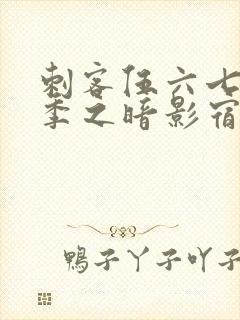 刺客伍六七
季之暗影宿
鴨子丫子吖子